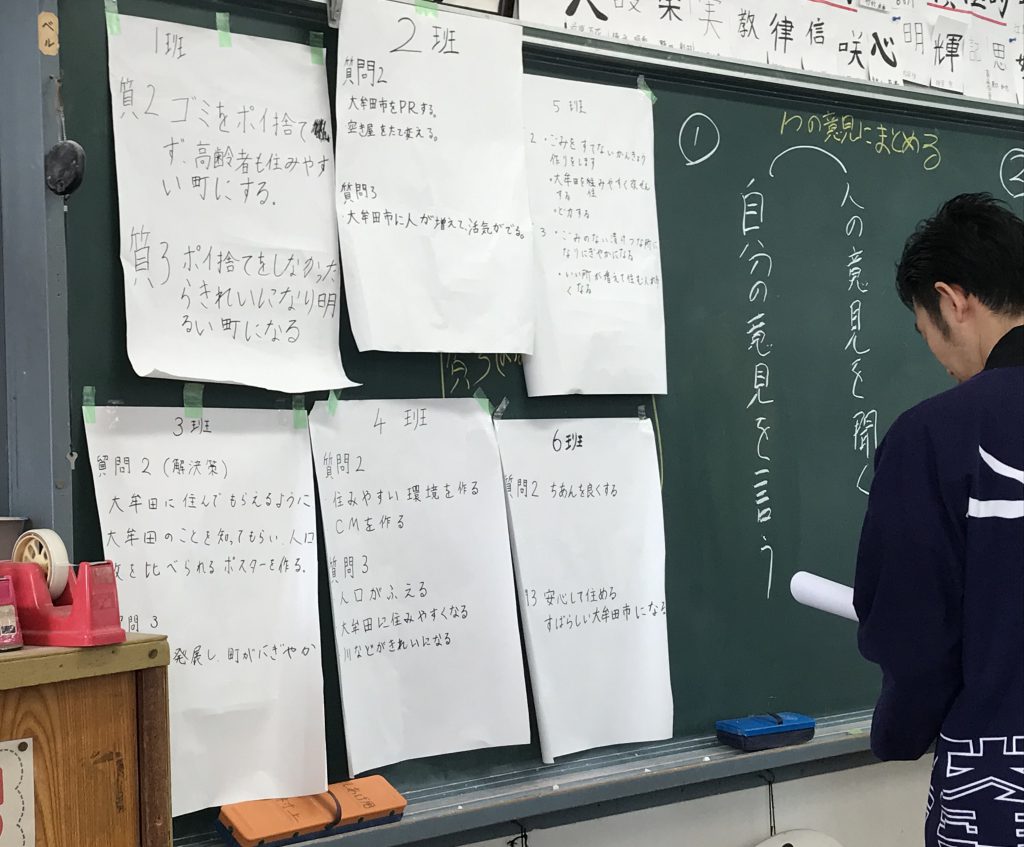 ベル
1班
質2 ゴミをポイ捨て
ず、高齢者も住みやす
い町にする。
質3 ポイ捨てをしなかった
らきれいになり明
るい町になる
2班
質問2
大牟田市をPRする。
空き屋をたて変える。
質問3
大牟田市に人が増えて、活気がでる。
5班
2.・ごみをすてないかんきょう
作りをします
・大牟田を
住みやすく
する
3.・ごみのない
なりにぎやかになる
・いい所が増えて住む人が
くなる
3班
質問2(解決策)
大牟田に住んでもらえるように
大牟田のことを知ってもらい、人口
数を比べられるポスターを作る。
問3
発展し、町がにぎやか
4班
質問2
・住みやすい環境を作る
CMを作る
質問3
人口がふえる
大牟田に住みやすくなる
川などがきれいになる
6班
質問2 ちあんを良くする
3 安心して住める
すばらしい大牟田市になる
①
の意見にまとめる
人の意見を聞く
自分の意見を言う
②
教律信咲心明輝